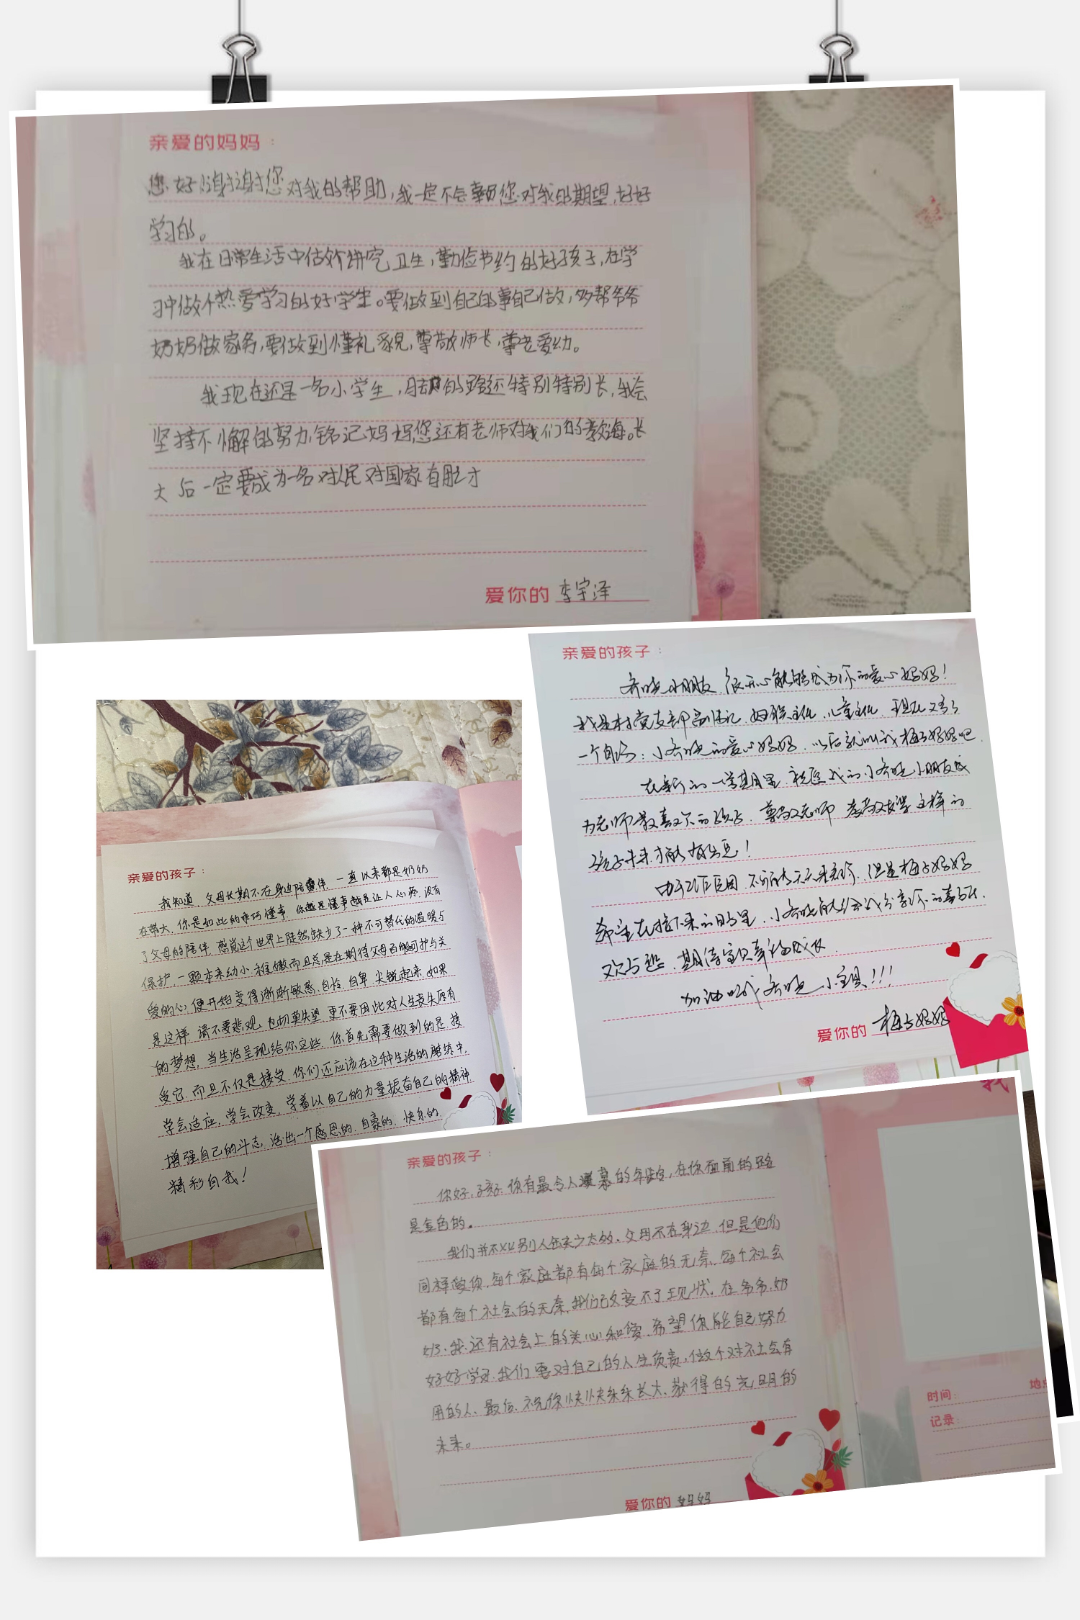 亲爱的妈妈：
您好谢谢您对我的帮助,我一定不会辜负您对我的期望,好好
学习的。
我在日常生活中 讲究卫生,勤俭节约的好孩子,在学
习中做个热爱学习的好学生。要做到自己的事自己做,多帮爷爷
奶奶做家务,要做到懂礼貌,尊敬师长,尊老爱幼。
我现在还是一名小学生, 的路还特别特别长,我会
坚持不懈的努力,铭记妈妈您还有老师对我们的教诲。长
大后一定要成为一名对人民对国家有用之才
爱你的 李宇泽
亲爱的孩子：
小朋友 很开心能够成为你的爱心妈妈！
我是村党支部副书记、妇联主任、儿童主任 现在又多了
一个身份：小 的爱心妈妈,以后就叫我梅子妈妈吧
在新的一学期里,祝愿我的小 小朋友成
为老师最喜欢的孩子,尊敬老师
孩子未来才能有出息！
由于工作原因 不能天天来看你,但是梅子妈妈
希望在接下来的日子里,小 能分享你的喜与乐、
欢与悲,期待宝贝幸福成长
加油吧 小宝贝!!!
爱你的 梅子妈妈
亲爱的孩子：
我知道,父母长期不在身边陪伴,一直以来都是奶奶
在带大,你是如此的乖巧懂事,你越是懂事越是让人心疼,没有
了父母的陪伴,感觉这个世界上陡然缺少了一种不可替代的温暖与
保护,一颗本来幼小、稚嫩而且总是在期待父母百般呵护与关
爱的心,便开始变得渐渐敏感、自怜、自卑、尖锐起来,如果
是这样,请不要悲观,也切莫失望,更不要因此对人生丧失原有
的梦想,当生活呈现给你这些,你首先需要做到的是接
受它,而且不仅是接受,你们还应该在这种生活的磨练中,
学会适应,学会改变,学着以自己的力量振奋自己的精神,
增强自己的斗志,活出一个感恩的、自豪的、快乐的、
精彩自我！
亲爱的孩子：
你好,孩子,你有最令人羡慕的年龄,在你面前的路
是金色的。
我们并不比别人缺失少太多。父母不在身边,但是他们
同样爱你,每个家庭都有每个家庭的无奈,每个社会
都有每个社会的无奈,我们改变不了现状,在爷爷、奶
奶、我、还有社会上的关心和爱,希望你能自己努力
好好学习,我们要对自己的人生负责,做个对社会有
用的人、最后,祝你快快乐乐长大,获得的光明的
未来。
爱你的 妈妈
时间：
记录